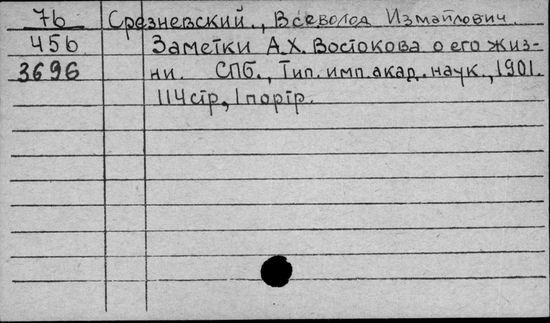 76 Срезневский., Всеволод Измайлович.
456 Заметки А.Х. Востокова о его жиз-
3696 ни. СПб., Тип. имп. акад. наук., 1901.
114стр., 1 портр.